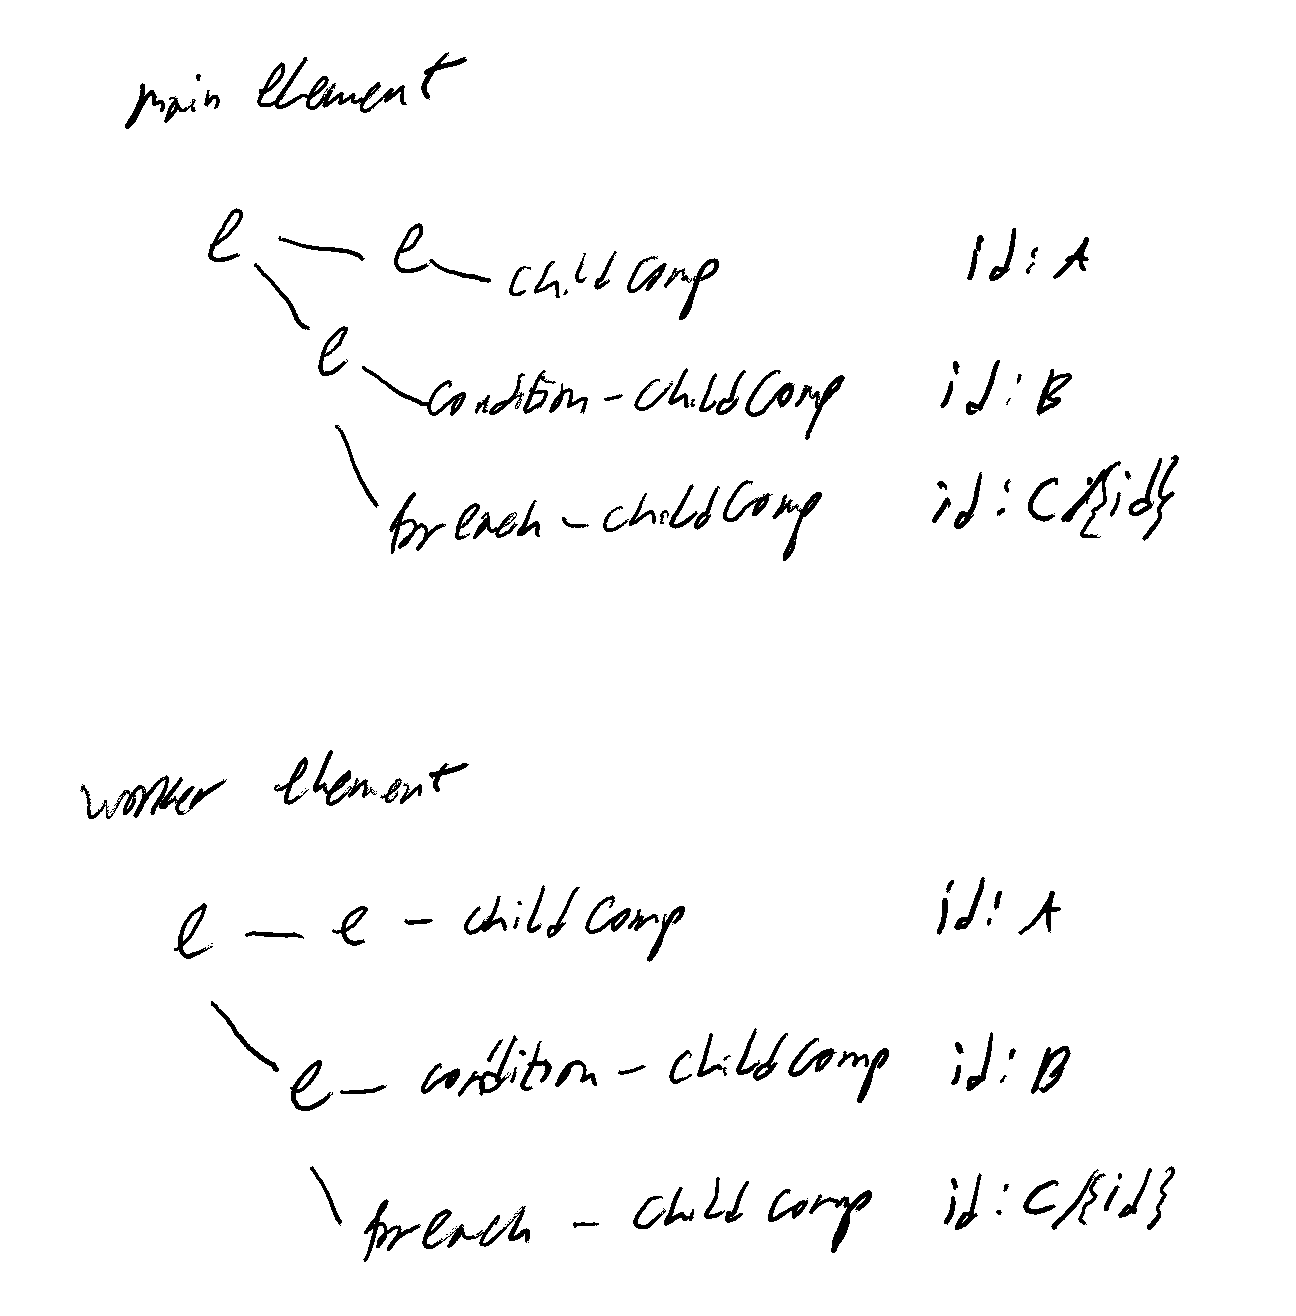 main element
e — e — childComp id: A
e — condition - childComp id: B
foreach - childComp id: C/{id}
worker element
e — e - childComp id: A
e — condition - childComp id: B
foreach - childComp id: C/{id}